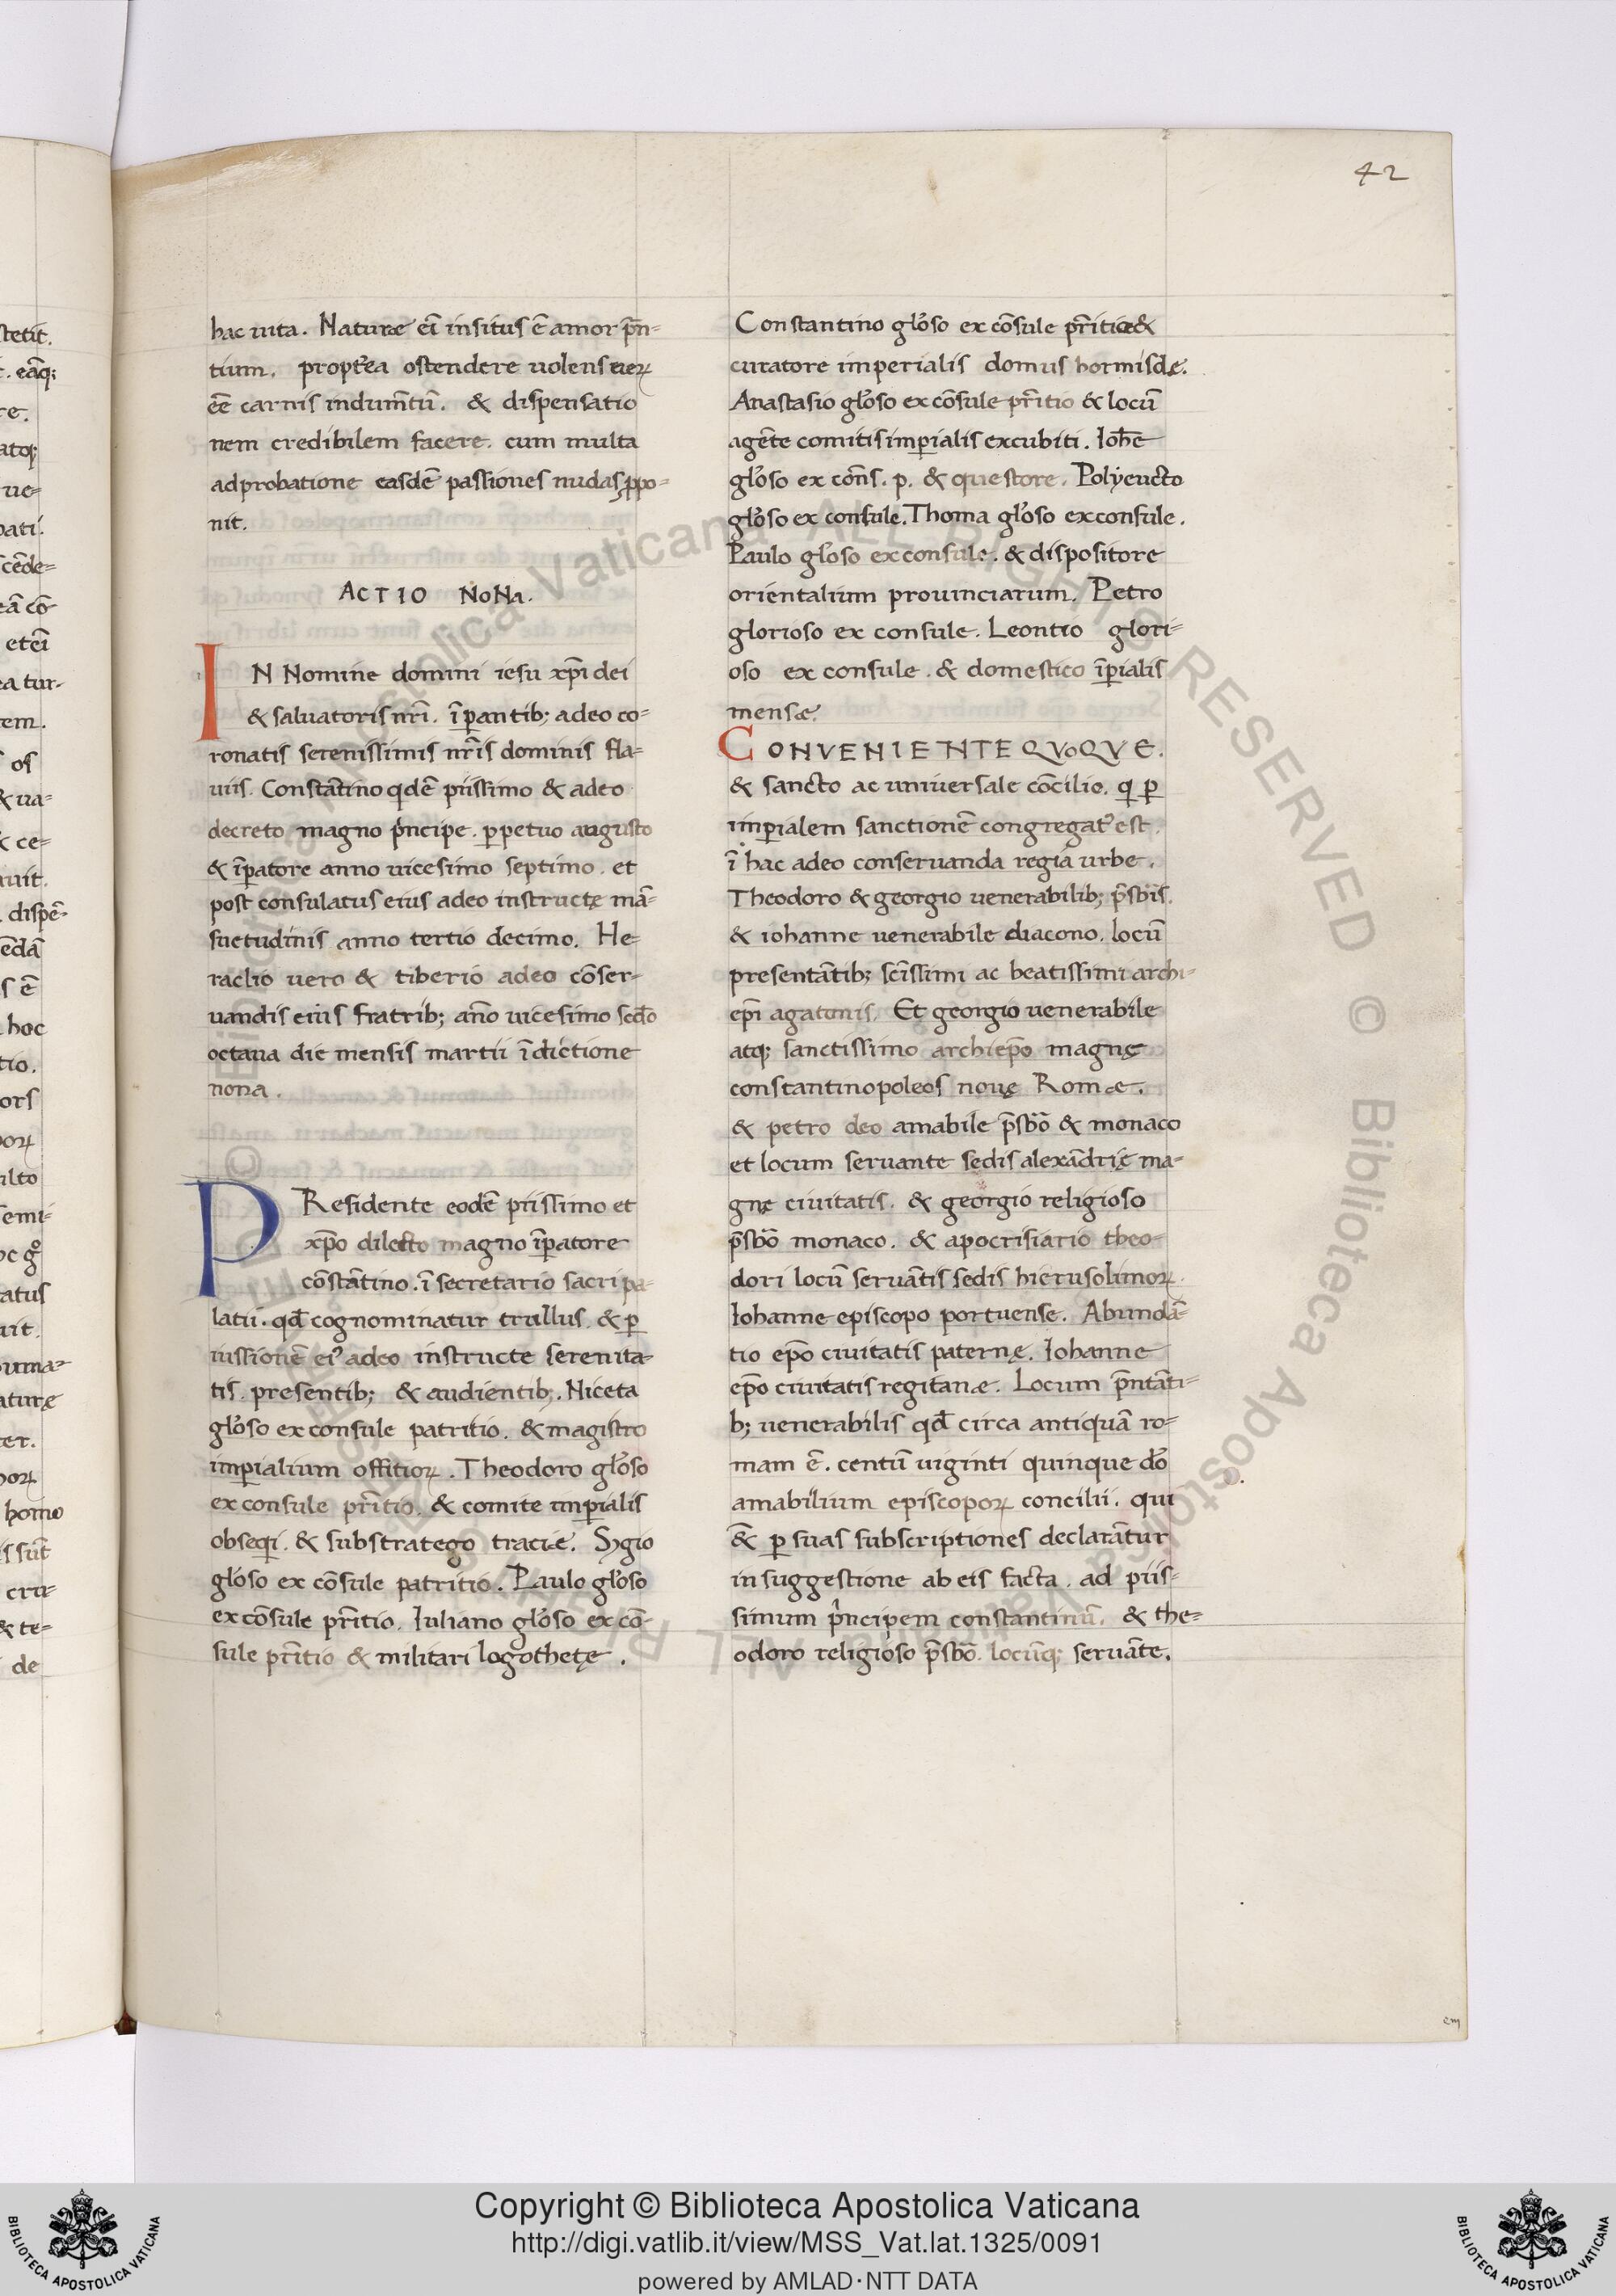 42
tetit.
. eāq;
re.
atq;
ue=
pati.
cēde=
eā cō
etei
ea tur-
rem.
os
& ua=
& ce=
auit.
dispē-
ēdā
s ē
hoc
tio.
ors
orꝝ
ulto
semi-
oc gͦ
atus
uit.
uma=
ature̢
ter.
orꝝ
homo
is sūt
cru-
& te=
de
hac uita. Naturæ eī insitus ē amor p̄n=
tium. propťea ostendere uolens ueꝝ
eē carnis indumtū. & dispensatio
nem credibilem facere. cum multa
adprobatione easdē passiones nudas ꝓpo=
nit.
ACTIO NoNa.
IN Nomine domini iesu xp̄i dei
& saluatoris nr̄i. īꝑantib; adeo co=
ronatis serenissimis nr̄is dominis fla=
uiis. Constātino qdē piissimo & adeo
decreto magno pͥncipe. ꝑpetuo augusto
& īꝑatore anno uicesimo septimo. et
post consulatus eius adeo instructę mā=
suetudinis anno tertio decimo. He=
raclio uero & tiberio adeo cōser=
uandis eius fratrib; an̄o uicesimo scd̄o
octaua die mensis martii īdictione
nona.
PResidente eodē piissimo et
xp̄o dilecto magno īꝑatore
cōstātino. ī secretario sacri pa-
latii. qd̄ cognominatur trullus. & ꝑ
iussionē eiꝰ adeo instructe serenita=
tis. presentib; & audientib;. Niceta
glōso ex consule patritio. & magistro
imꝑialium offitioꝝ. Theodoro glōso
ex consule pr̄itio. & comite imꝑialis
obseqi. & substratego tracie. Sgio
gloso ex cōsule patritio. Paulo glōso
ex cōsule pr̄itio. Iuliano glōso ex cō-
sule pr̄itio & militari logothetę.
Constantino glōso ex cōsule pr̄itio &
curatore imperialis domus hormisdę.
Anastasio glōso ex cōsule pr̄itio & locū
agēte comitis imꝑialis excubiti. Ioh̄e
glōso ex cōns. p. & questore. Polyeucto
glōso ex consule. Thoma glōso exconsule.
Paulo gloso ex consule. & dispositore
orientalium prouinciarum. Petro
glorioso ex consule. Leontio glori=
oso ex consule. & domestico īꝑialis
mensæ.
CONVENIENTE QVoQVE.
& sancto ac uniuersale cōcilio. q ꝑ
imꝑialem sanctionē congregatꝰ est.
ī hac adeo conseruanda regia urbe.
Theodoro & georgio uenerabilib; p̄sbr̄is.
& iohanne uenerabile diacono. locū
presentātib; sc̄issimi ac beatissimi archi=
ep̄i agatonis. Et georgio uenerabile
atq; sanctissimo archiep̄o magnę
constantinopoleos nouę Romæ.
& petro deo amabile p̄sbr̄o & monaco
et locum seruante sedis alexādrię ma=
gnę ciuitatis. & georgio religioso
p̄sbr̄o monaco. & apocrisiario theo=
dori locū seruātis sedis hierusolimoꝝ.
Iohanne episcopo portuense. Abundā=
tio ep̄o ciuitatis paternę. Iohanne
ep̄o ciuitatis regitanæ. Locum p̄ntāti=
b; uenerabilis qd̄ circa antiquā ro=
mam ē. centū uiginti quinque dō
amabilium episcopoꝝ concilii. qui
& ꝑ suas subscriptiones declarātur
in suggestione ab eis facta. ad piis=
simum pͥncipem constantinū. & the=
odoro religioso p̄sbr̄o. locūq; seruāte.
em
© Biblioteca Apostolica Vaticana ALL RIGHTS RESERVED © Biblioteca Apostolica Vaticana ALL RIGHTS RESERVED
BIBLIOTECA APOSTOLICA VATICANA
Copyright © Biblioteca Apostolica Vaticana
http://digi.vatlib.it/view/MSS_Vat.lat.1325/0091
powered by AMLAD·NTT DATA
BIBLIOTECA APOSTOLICA VATICANA